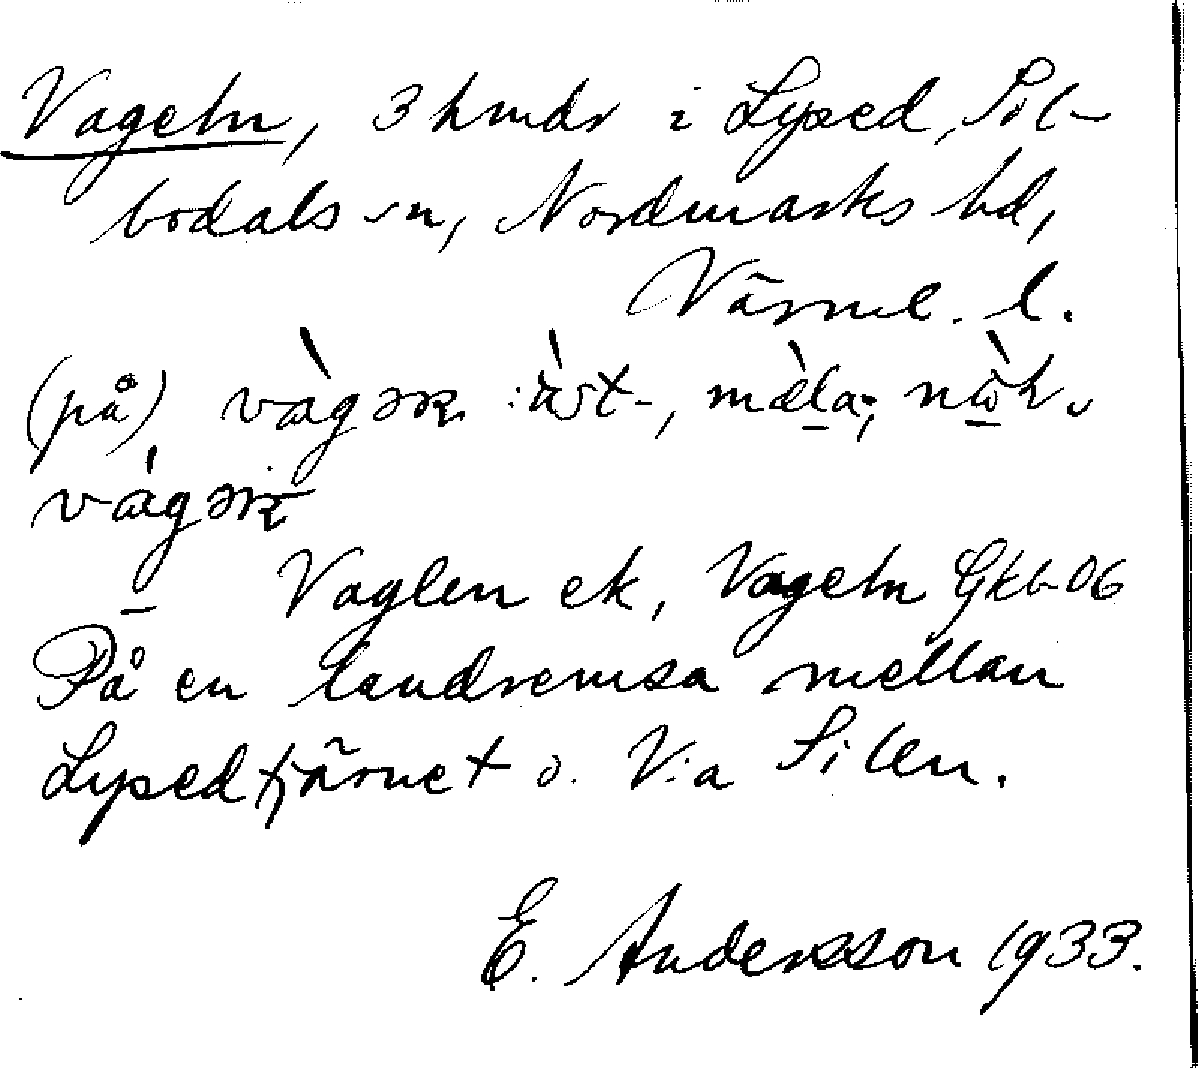 Vageln, 3 hmdr i Lysed, Sil-
bodals sn, Nordmarks hd,
Värml. l.
(på) vàgəɴ : àst-, mæ̀la-, nòh-
vàgəɴ
— Vaglen ek, Vageln Gkb 06
På en landremsa mellan
Lysedtjärnet o. V:a Silen.
E. Andersson 1933.